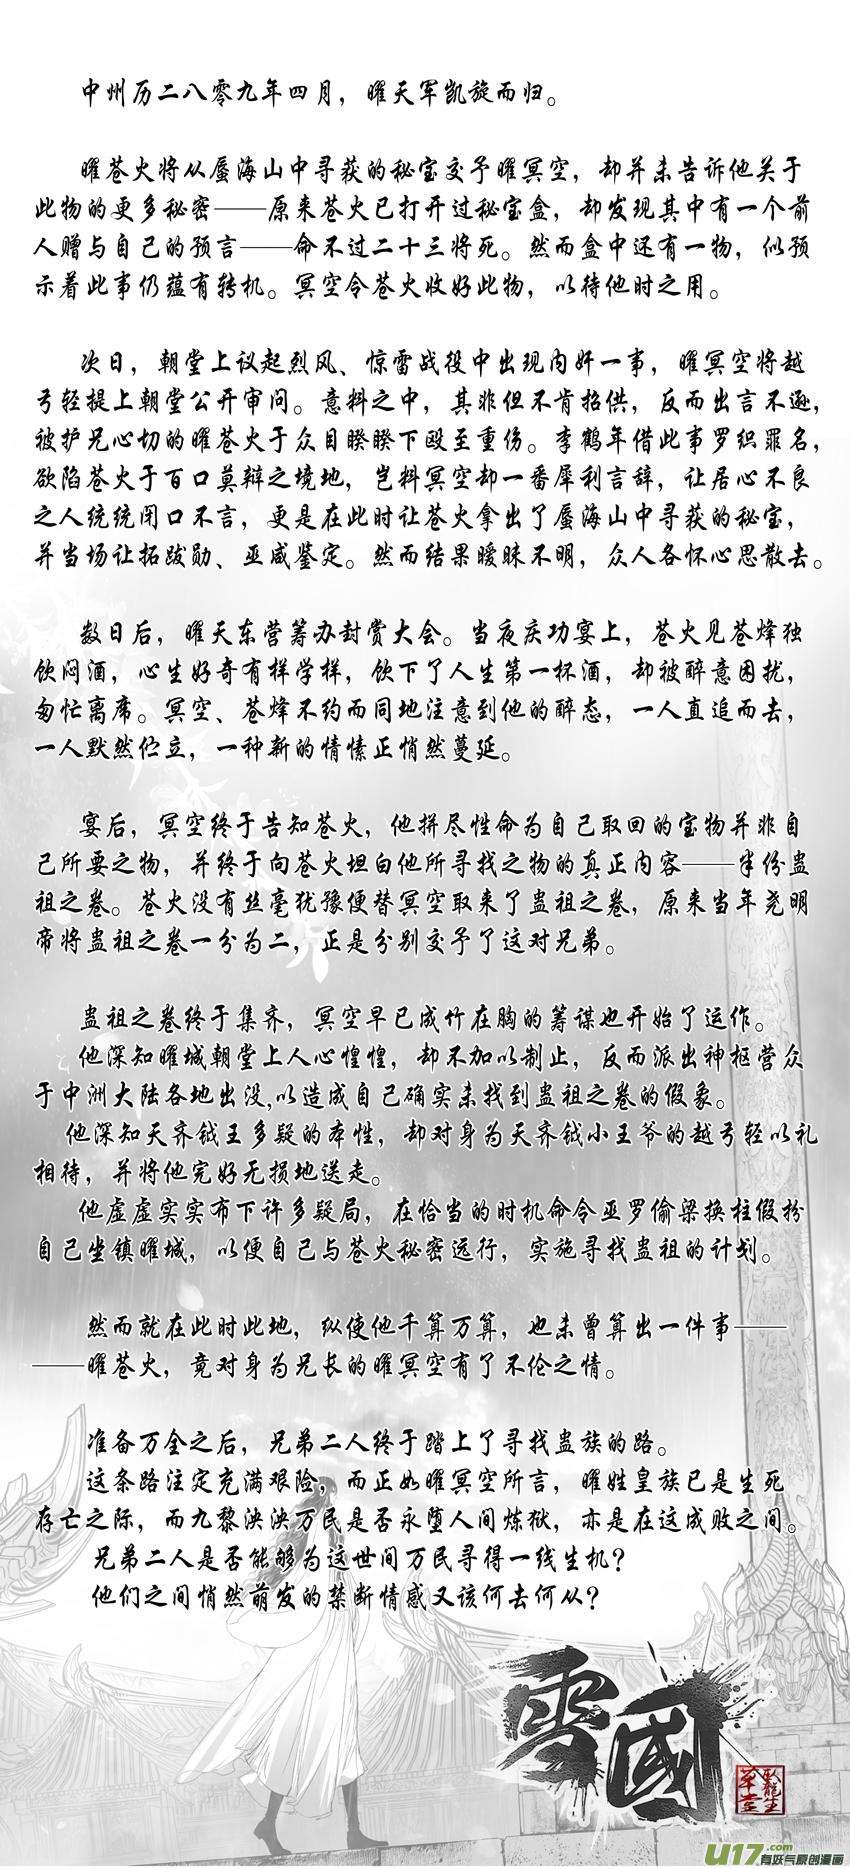 中州历二八零九年四月，曜天军凯旋而归。
曜苍火将从蜃海山中寻获的秘宝交予曜冥空，却并未告诉他关于
此物的更多秘密——原来苍火已打开过秘宝盒，却发现其中有一个前
人赠与自己的预言——命不过二十三将死。然而盒中还有一物，似预
示着此事仍蕴有转机。冥空令苍火收好此物，以待他时之用。
次日，朝堂上议起烈风、惊雷战役中出现内奸一事，曜冥空将越
兮轻提上朝堂公开审问。意料之中，其非但不肯招供，反而出言不逊，
被护兄心切的曜苍火于众目睽睽下殴至重伤。李鹤年借此事罗织罪名，
欲陷苍火于百口莫辩之境地，岂料冥空却一番犀利言辞，让居心不良
之人统统闭口不言，更是在此时让苍火拿出了蜃海山中寻获的秘宝，
并当场让拓跋勋、亚咸鉴定。然而结果暧昧不明，众人各怀心思散去。
数日后，曜天东营筹办封赏大会。当夜庆功宴上，苍火见苍烽独
饮闷酒，心生好奇有样学样，饮下了人生第一杯酒，却被醉意困扰，
匆忙离席。冥空、苍烽不约而同地注意到他的醉态，一人直追而去，
一人默然伫立，一种新的情愫正悄然蔓延。
宴后，冥空终于告知苍火，他拼尽性命为自己取回的宝物并非自
己所要之物，并终于向苍火坦白他所寻找之物的真正内容——半份蛊
祖之卷。苍火没有丝毫犹豫便替冥空取来了蛊祖之卷，原来当年尧明
帝将蛊祖之卷一分为二，正是分别交予了这对兄弟。
蛊祖之卷终于集齐，冥空早已成竹在胸的筹谋也开始了运作。
他深知曜城朝堂上人心惶惶，却不加以制止，反而派出神枢营众
于中洲大陆各地出没,以造成自己确实未找到蛊祖之卷的假象。
他深知天齐钺王多疑的本性，却对身为天齐钺小王爷的越兮轻以礼
相待，并将他完好无损地送走。
他虚虚实实布下许多疑局，在恰当的时机命令亚罗偷梁换柱假扮
自己坐镇曜城，以便自己与苍火秘密远行，实施寻找蛊祖的计划。
然而就在此时此地，纵使他千算万算，也未曾算出一件事——
——曜苍火，竟对身为兄长的曜冥空有了不伦之情。
准备万全之后，兄弟二人终于踏上了寻找蛊族的路。
这条路注定充满艰险，而正如曜冥空所言，曜姓皇族已是生死
存亡之际，而九黎泱泱万民是否永堕人间炼狱，亦是在这成败之间。
兄弟二人是否能够为这世间万民寻得一线生机？
他们之间悄然萌发的禁断情感又该何去何从？
雪國
卧龍生
草堂
U17.com
有妖气原创漫画